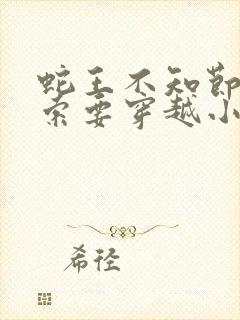 蛇王不知节
索要穿越小
希径